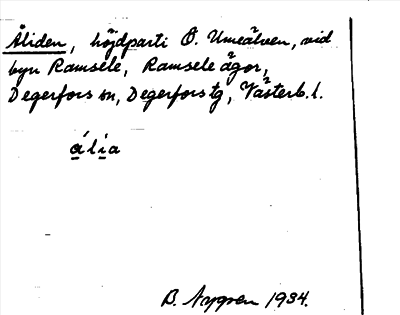 Åliden, höjdparti Ö. Umeälven, vid
byn Ramsele, Ramsele ägor,
Degerfors sn, Degerfors tg, Västerb. l.
ália
B. Nygren 1934.